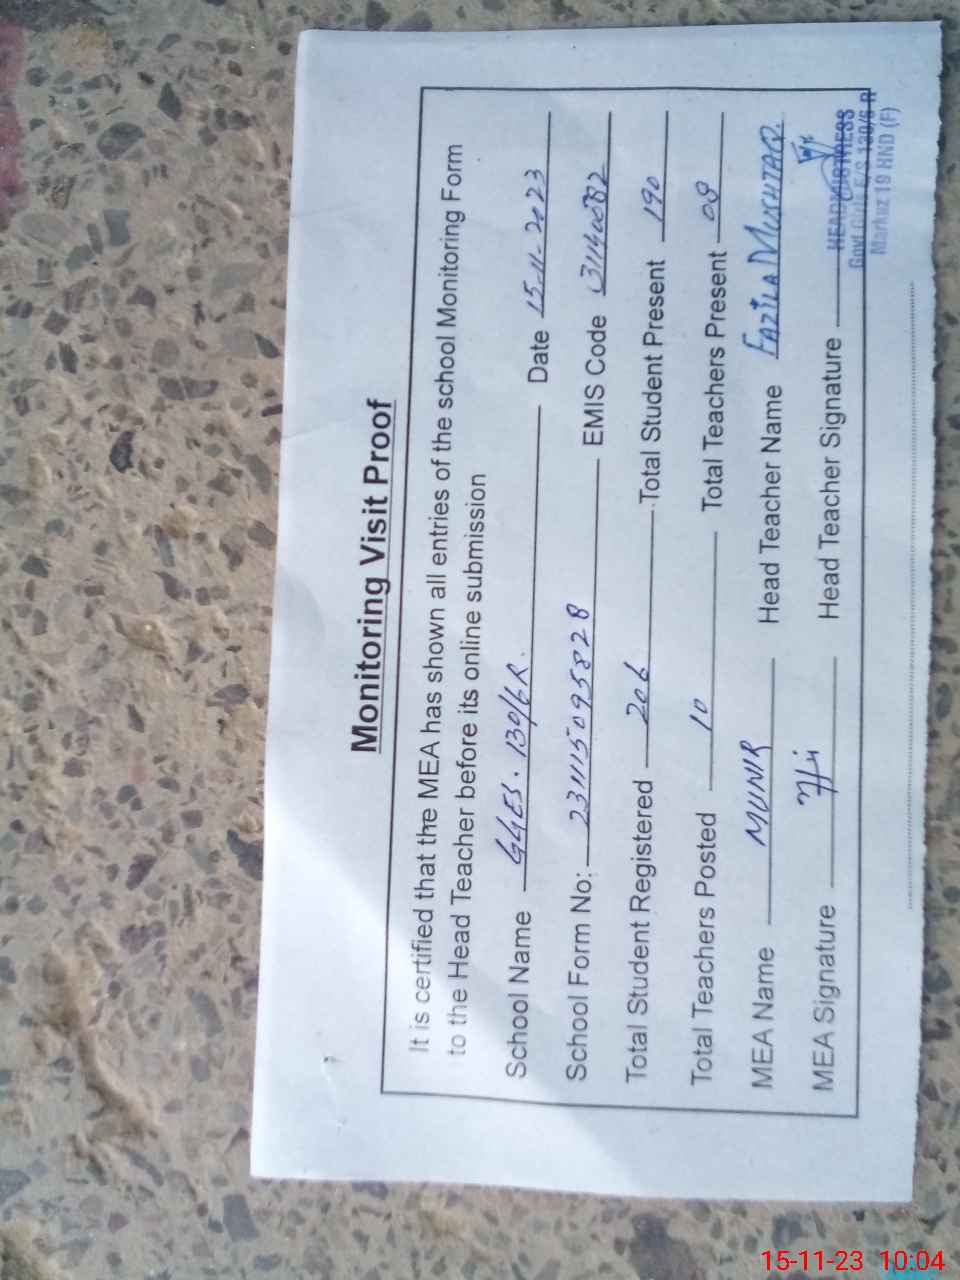 Monitoring Visit Proof
It is certified that the MEA has shown all entries of the school Monitoring Form
to the Head Teacher before its online submission
School Name GGES. 130/6R. Date 15-11-2023
School Form No: 231115095828 EMIS Code 31140882
Total Student Registered 206 Total Student Present 190
Total Teachers Posted 10 Total Teachers Present 08
MEA Name MUNIR Head Teacher Name FAZILA MUKHTAR
MEA Signature Head Teacher Signature
HEADMISTRESS
Govt Girls E/S 130/6-R
Markaz 19 HND (F)
15-11-23 10:04